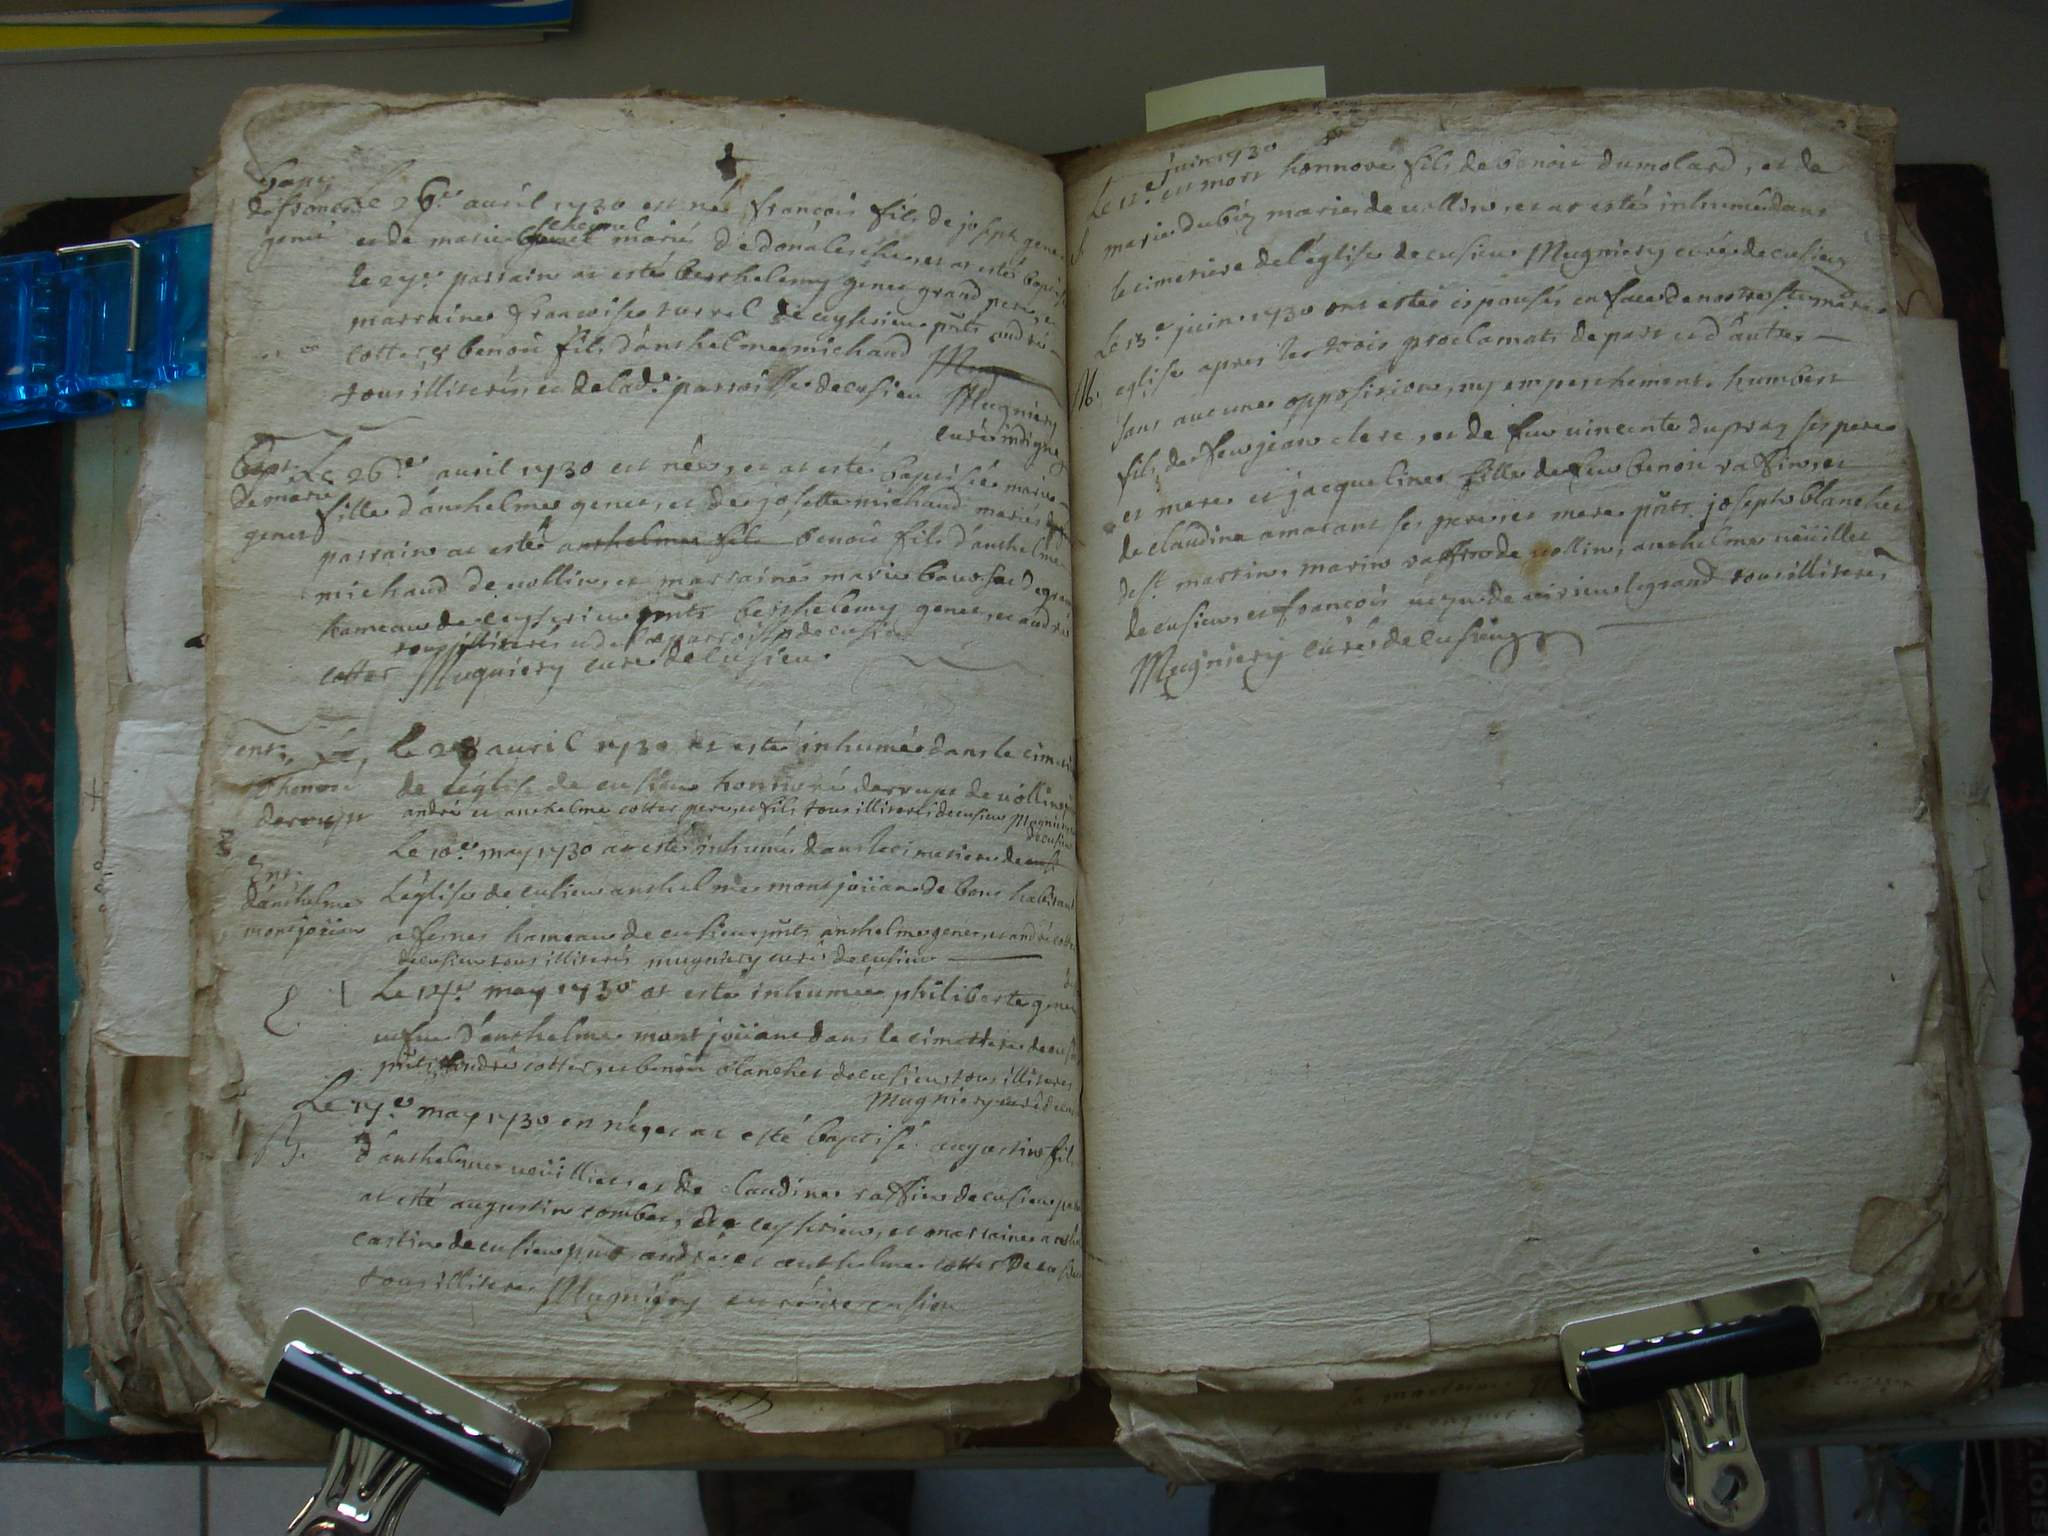 bapt
de francois
genet
Le 26e auril 1730 est né françois fils de joseph genet
et de marie mariés
le 27e parrain at esté berthelemy genet grand pere, et
marraine francoise de ceyserieu pñts andré
cotter & benoit fils d'anthelme michaud
tous illiterés et de lade parroisse de cusieu Mugniery
curé indigne
bapt
de marie
genet
Le 26e auril 1730 est née, et at esté baptisée marie
fille d'anthelme genet, et de josette michaud mariés
parrain at esté anthelme fils benoit fils d'anthelme
michaud de uollin, et marraine marie
hameau de ceyserieu pñts berthelemy genet, et andré
tous illiterés et de la parroisse de cusieu
cotter Mugniery curé de cusieu
ent:
d'honoré
Le 28 auril 1730 at esté inhumé dans le cimet
de l'église de cusieu honnoré de uollin
andré et anthelme cotter pere, et fils tous illiterés de cusieu Mugniery
de cusieu
Ent:
d'anthelme
montjoüan
Le 10e may 1730 at esté inhumé dans le cimetiere de
L'église de cusieu anthelme montjoüan de bons habitant
a hameau de cusieu pñts anthelme genet, et andré cotter
de cusieu tous illiterés mugniery curé de cusieu
E.
Le 14e may 1730 at esté inhumée philiberte genet
uefue d'anthelme montjoüan dans le cimettiere de cus
pñts andré cotter, et benoit blanchet de cusieu tous illiteres
Mugniery curé de cus
B.
Le 17e may 1730 en né, et at esté baptisé augustin fils
d'anthelme ueüillet et de claudine raffin de cusieu
at esté augustin combet, de ceyserieu, et marraine
castin de cusieu pñts andré et anthelme cotter de cusieu
tous illiteres Mugniery curé de cusieu
juin 1730
Le 12e est mort honnoré fils de benoit dumolard, et de
marie mariés de uollin, et at esté inhumé dans
le cimetiere de l'église de cusieu Mugniery curé de cusieu
M.
Le 13e juin 1730 ont estés espousés en face de nostre ste mere
eglise apres les trois proclamats de part et d'autre
sans aucune opposition, ny empeschement humbert
fils de feu jean clerc, et de feue uincente dupraz ses pere
et mere et jacqueline fille de feu benoit raffin, et
de claudine amarant ses pere, et mere pñts joseph blanchet
de st martin, marin raffin de uollin, anthelme ueüillet
de cusieu, et francois de uirieu le grand tous illiterés
Mugniery curé de cusieu